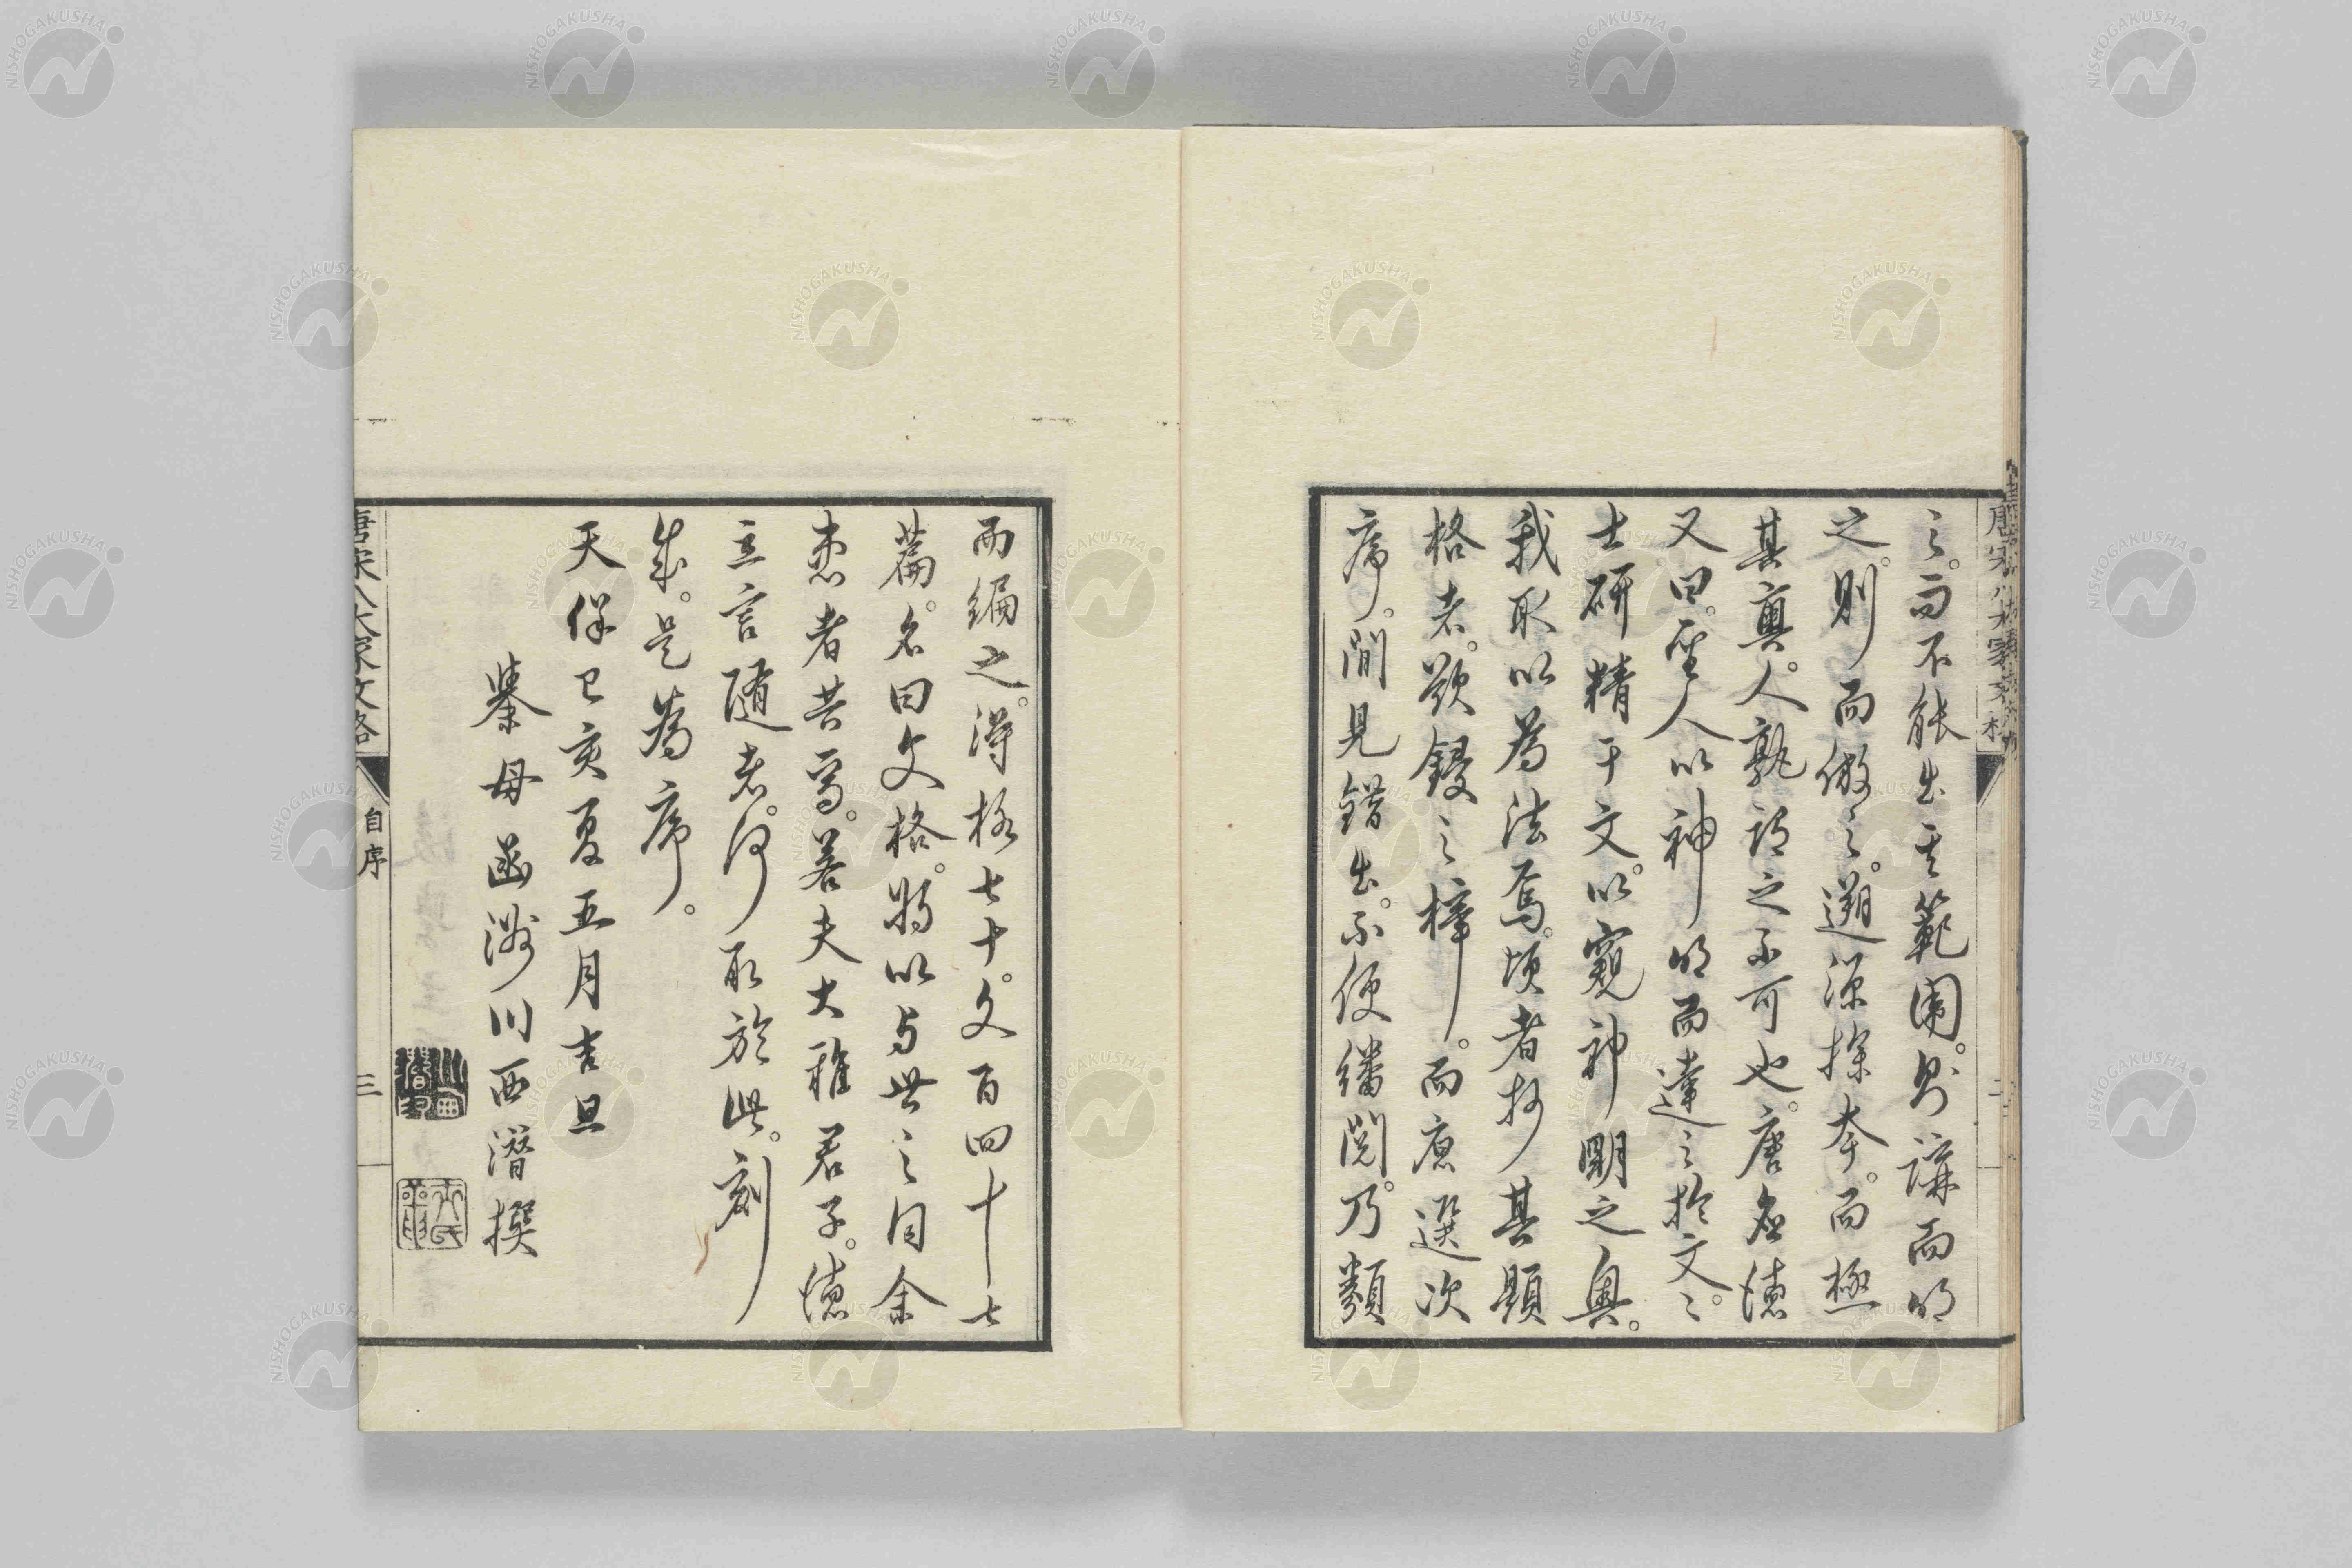 之。而不能出其範圍。則講而明
之。則而倣之。遡源探本。而極
其奧。人孰謂之不可也。唐應德
又曰。聖人以神明而達之於文。文
士研精于文。以窺神明之奧。
我取以為法焉。頃者抄其題
格者。欲鋟之梓。而應選次
序。間見錯出。不便繙閱。乃類
而編之。得格七十。文百四十七
篇。名曰文格。將以与世之同余
患者共焉。若夫大雅君子。德
立言隨者。何取於此。刻
成。是為序。
天保己亥夏五月吉旦
綦母函
川西潛撰
唐宋八大家文格
自序
三